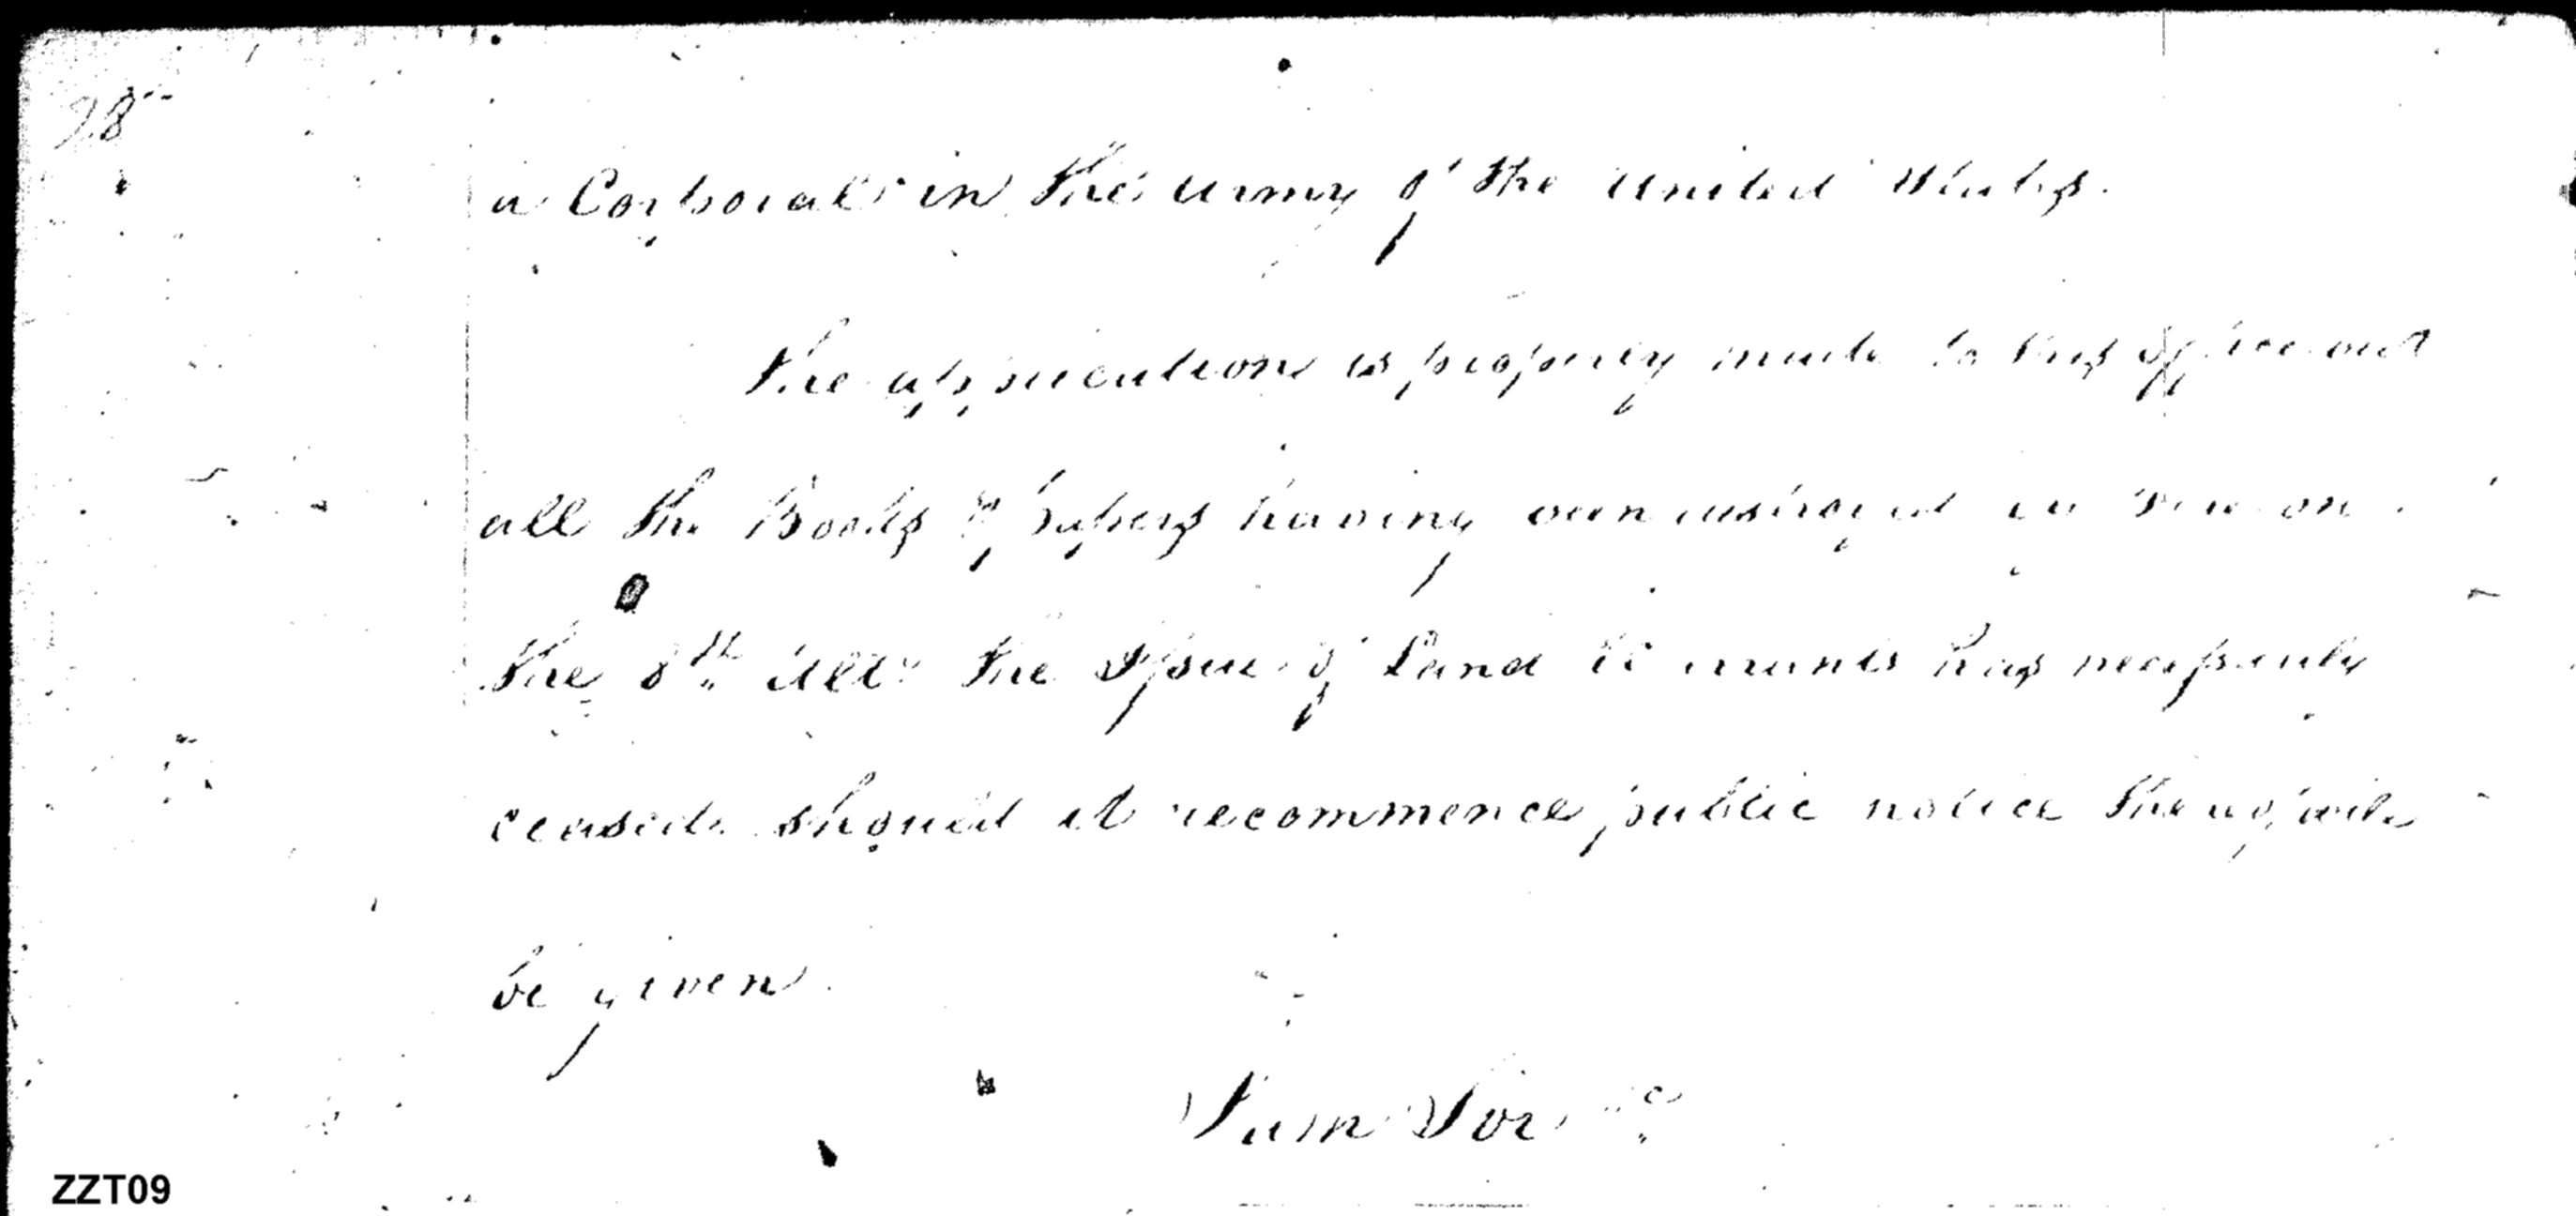 28
a Corporal in the army of the United States.
The application is properly made to this office but
all the Books & papers having been destroyed by fire on
the 8th Ulto the Issue of Land Warrants has necessarily
ceased. should it recommence public notice thereof will
be given.
I am Sir &c
ZZT09